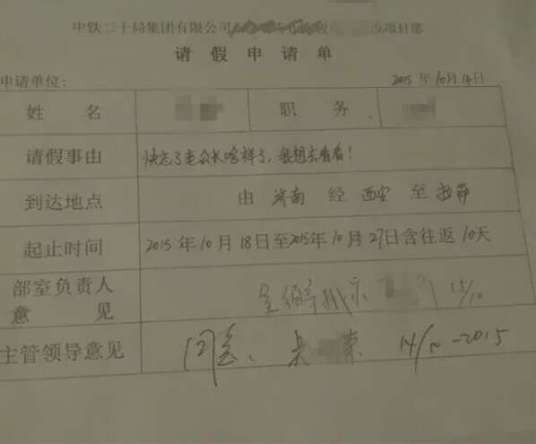 中铁二十局集团有限公司 项目部
请假申请单
申请单位： 2015年10月14日
姓 名 职 务
请假事由 快忘了老公长啥样了，我想去看看！
到达地点 由 济南 经 西安 至 拉萨
起止时间 2015年10月18日至2015年10月27日含往返10天
部室负责人
意 见 呈领导批示 15/10
主管领导意见 同意、 14/10-2015